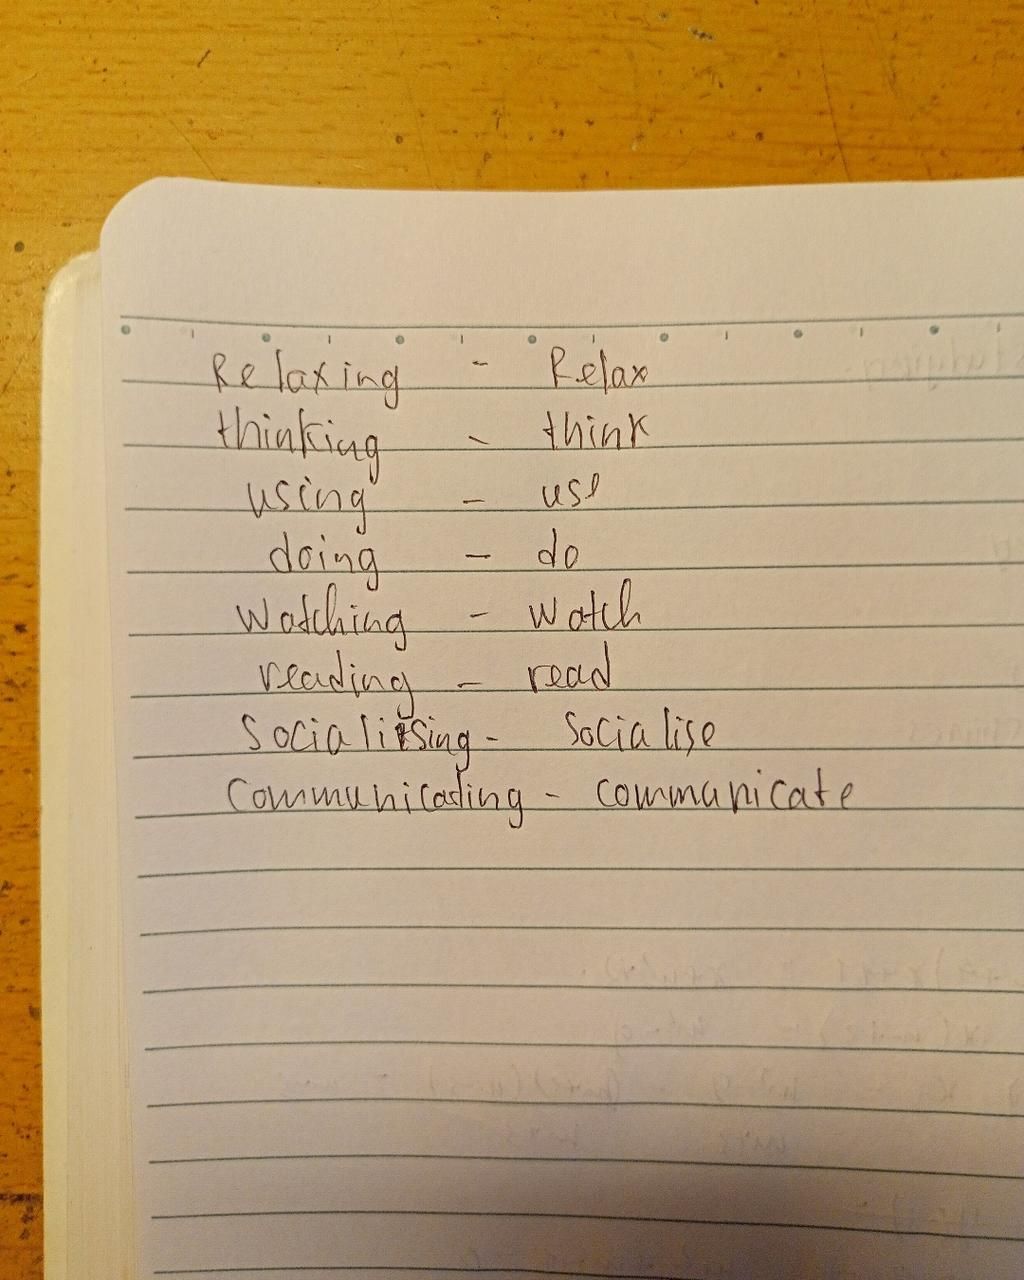 Relaxing - Relax
thinking - think
using - use
doing - do
Watching - Watch
reading - read
Socialising - Socialise
Communicating - communicate